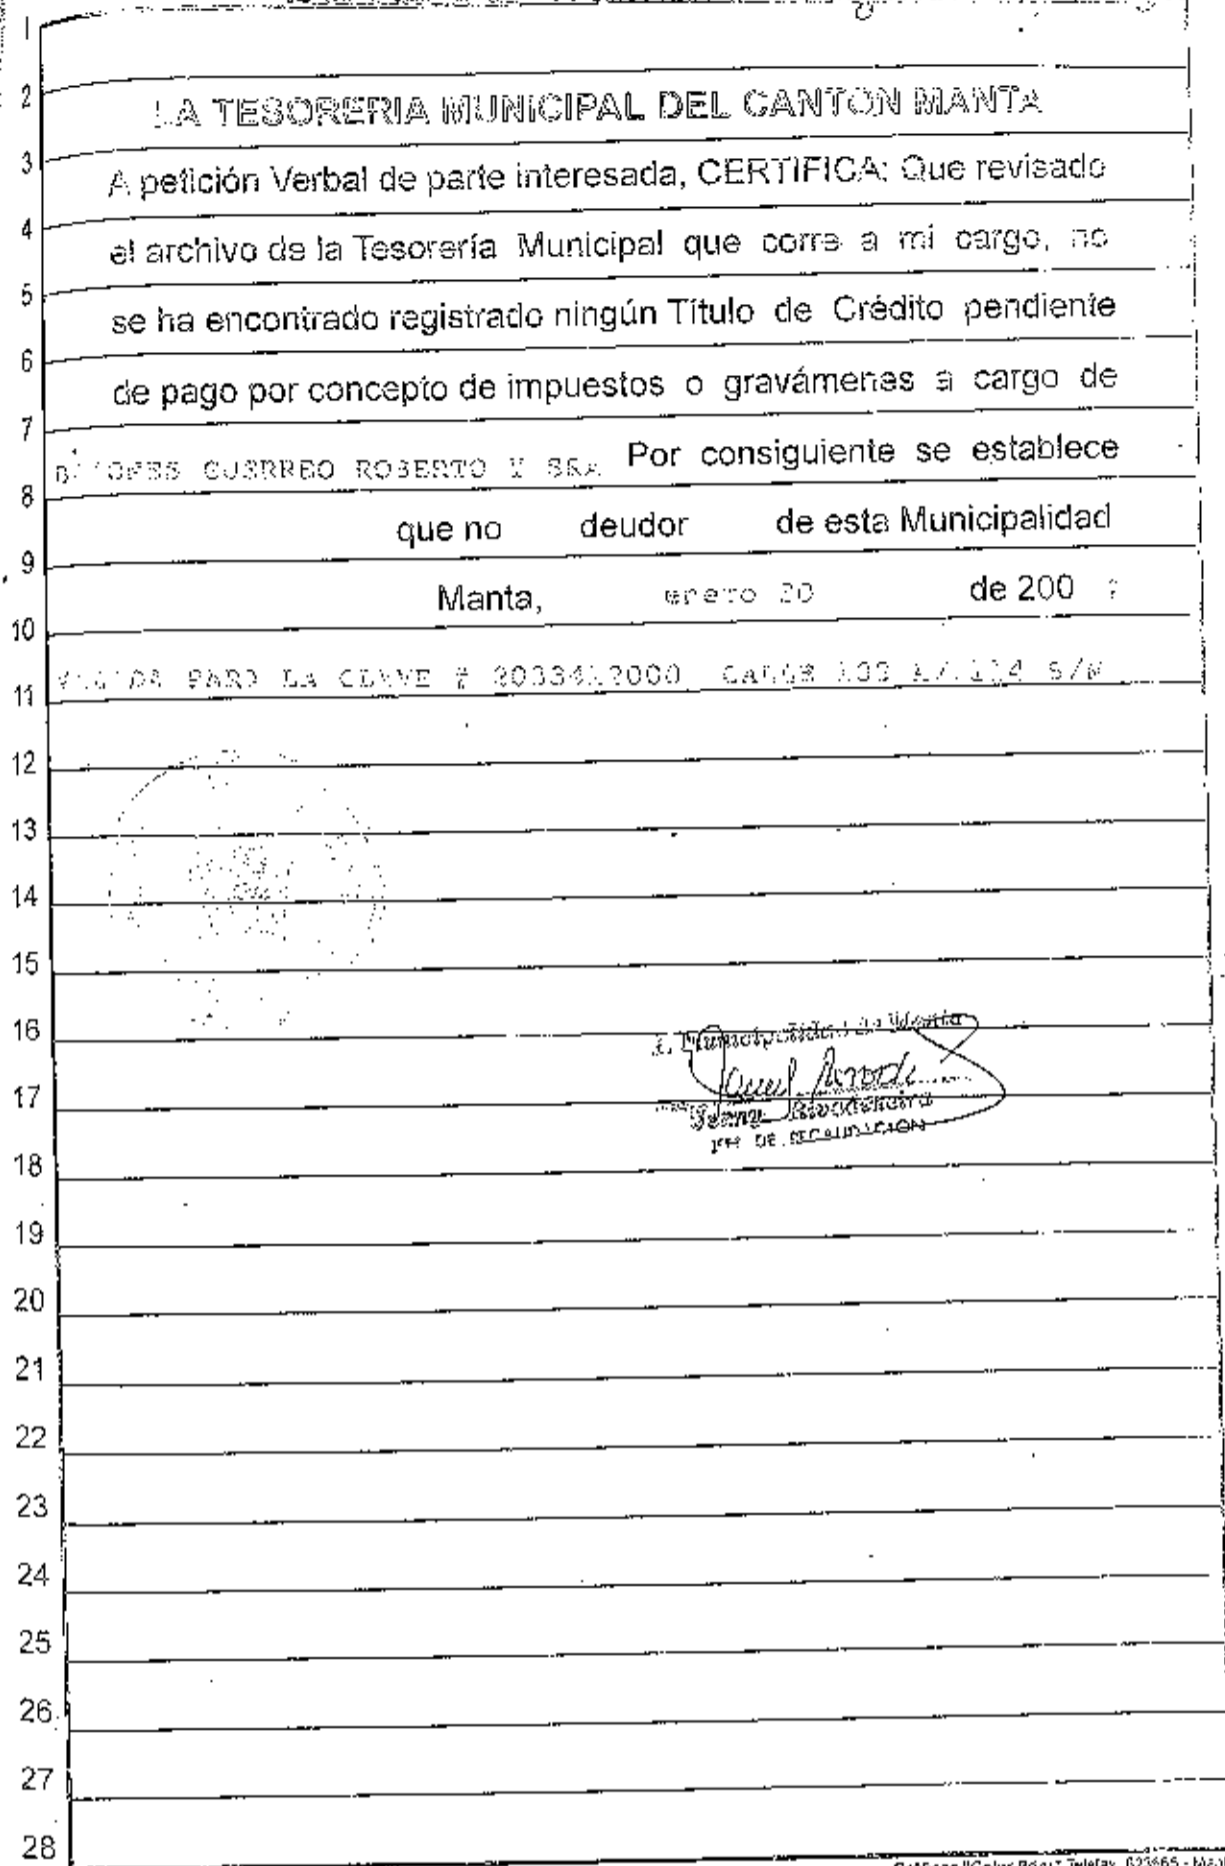 1
2
LA TESORERIA MUNICIPAL DEL CANTON MANTA
3
A petición Verbal de parte interesada, CERTIFICA: Que revisado
4
el archivo de la Tesorería Municipal que corre a mi cargo, no
5
se ha encontrado registrado ningún Título de Crédito pendiente
6
de pago por concepto de impuestos o gravámenes a cargo de
7
ROBERTO Y SRA Por consiguiente se establece
8
que no deudor de esta Municipalidad
9
Manta, enero 20 de 200
10
LA CLAVE # S/N
11
12
13
14
15
16
Municipalidad de Manta
17
18
19
20
21
22
23
24
25
26
27
28